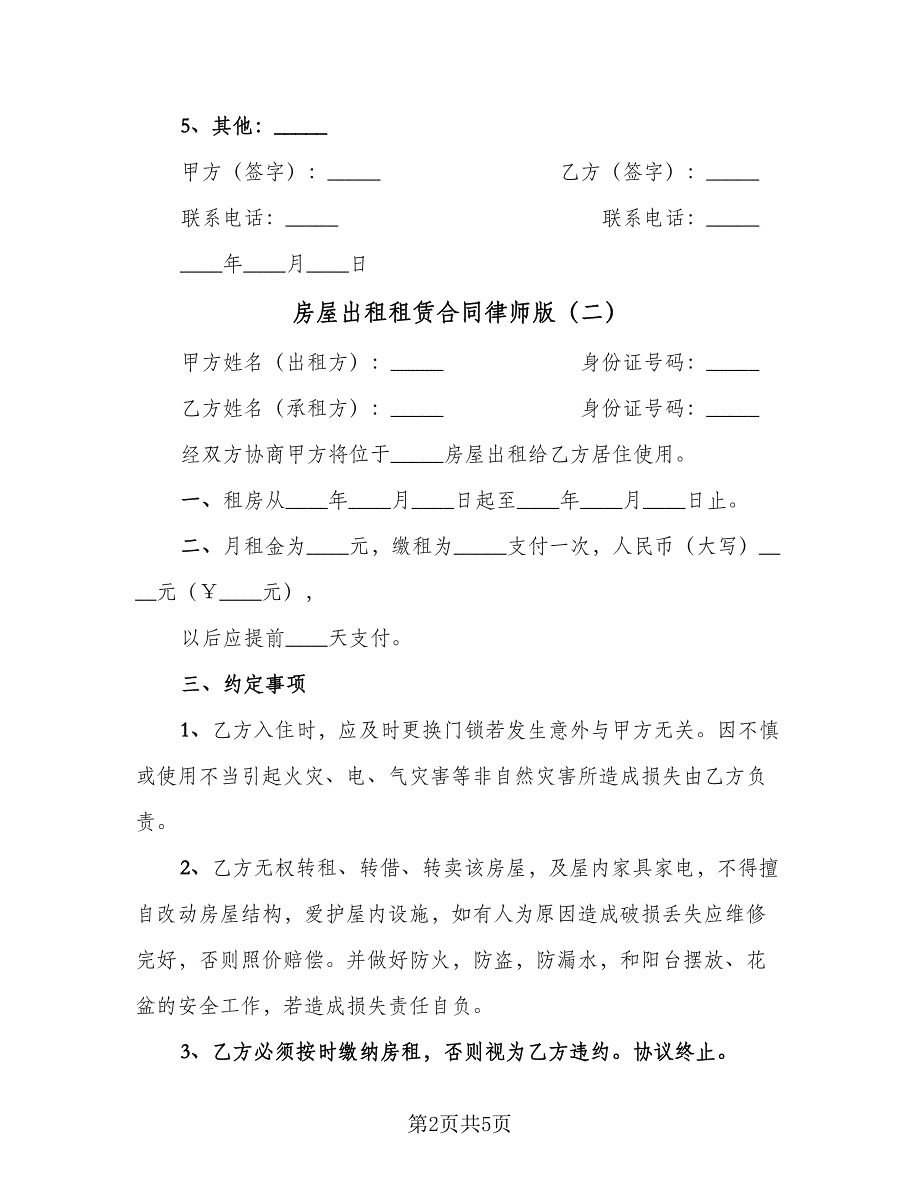 5、其他：_____
甲方（签字）：_____ 乙方（签字）：_____
联系电话：_____ 联系电话：_____
____年____月____日
房屋出租租赁合同律师版（二）
甲方姓名（出租方）：_____ 身份证号码：_____
乙方姓名（承租方）：_____ 身份证号码：_____
经双方协商甲方将位于_____房屋出租给乙方居住使用。
一、租房从____年____月____日起至____年____月____日止。
二、月租金为____元，缴租为_____支付一次，人民币（大写）__
__元（￥____元），
以后应提前____天支付。
三、约定事项
1、乙方入住时，应及时更换门锁若发生意外与甲方无关。因不慎
或使用不当引起火灾、电、气灾害等非自然灾害所造成损失由乙方负
责。
2、乙方无权转租、转借、转卖该房屋，及屋内家具家电，不得擅
自改动房屋结构，爱护屋内设施，如有人为原因造成破损丢失应维修
完好，否则照价赔偿。并做好防火，防盗，防漏水，和阳台摆放、花
盆的安全工作，若造成损失责任自负。
3、乙方必须按时缴纳房租，否则视为乙方违约。协议终止。
第2页共5页